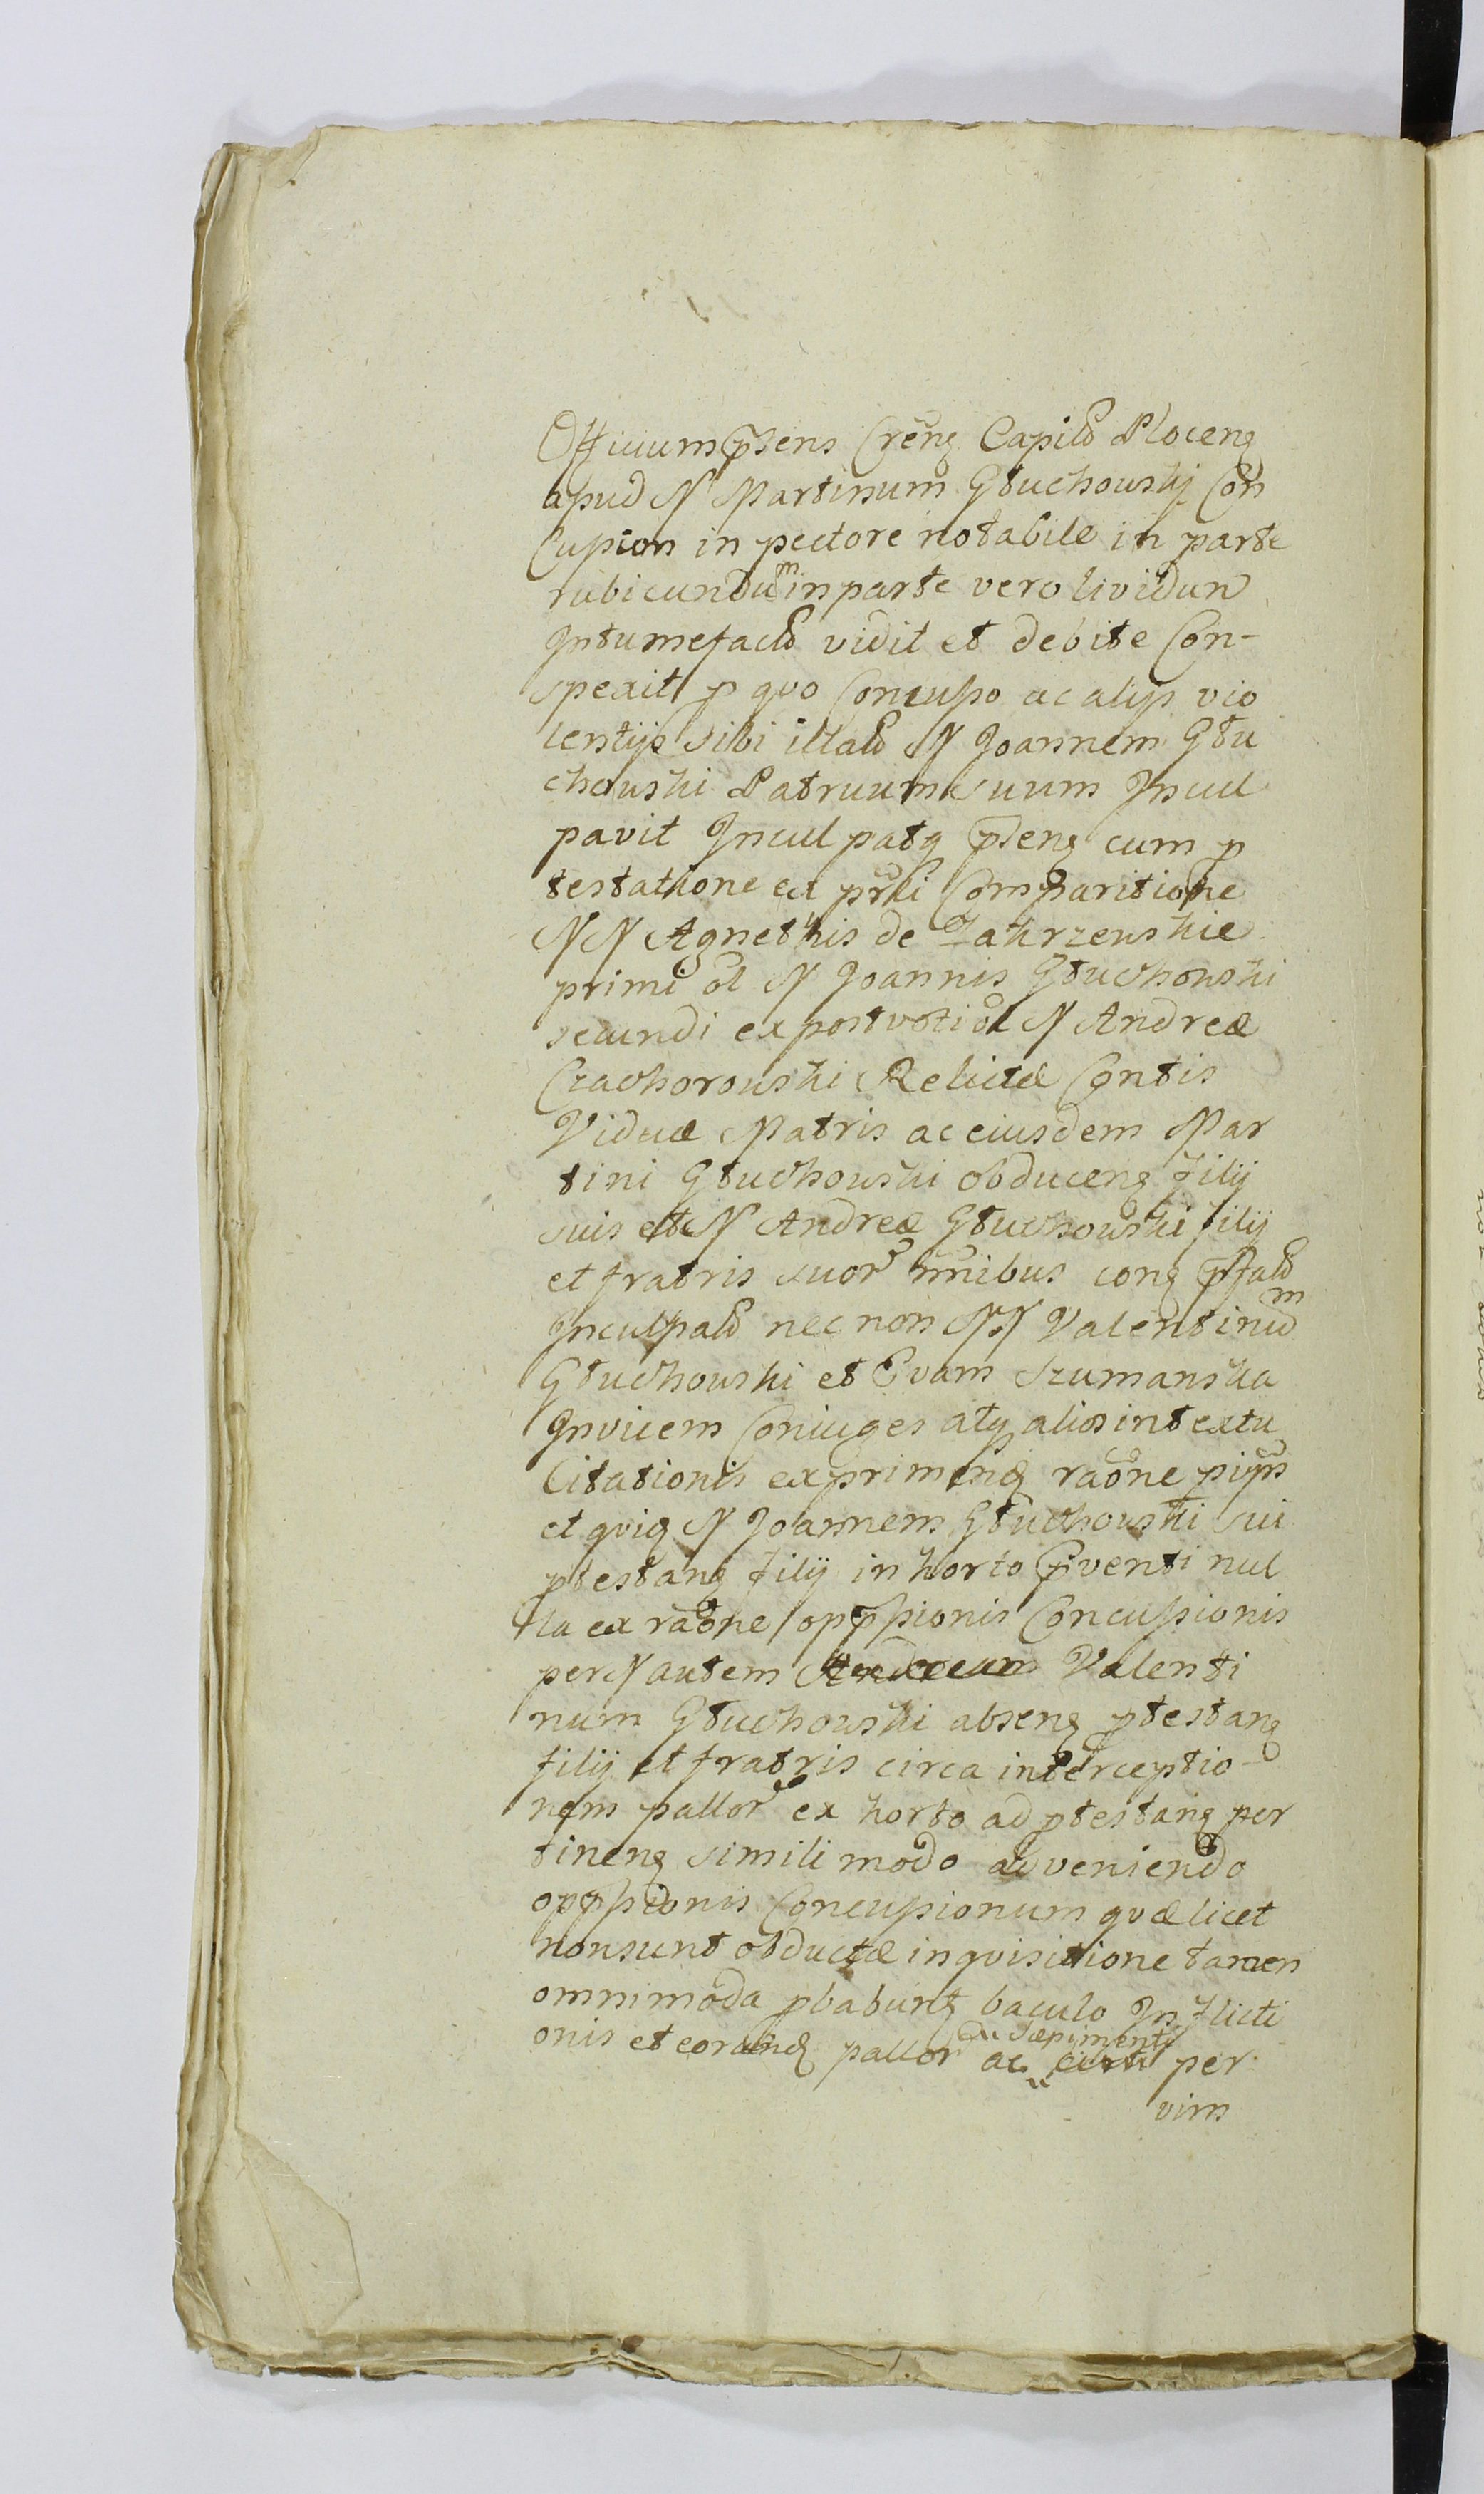 Officium p̄sens Crēnꝫ Capitłꝰ Plocenꝫ
apud N Martinum Głuchowskij Con
cussion in pectore notabile in parte
rubicundum in parte vero lividum
Intumefactꝰ vidit et debite Con-
spexit p quo Concusso ac alijs vio
lentijs sibi illatꝰ N Joannem Głu
chowski Patruum suum Incul
pavit Inculpatq p̄senꝫ cum p
testatione ex pˢˡⁱ Comparitione
NN Agnethis de Zakrzewskie
primi ol N Joannis Głuchowski
secundi ex post voti ol N Andreæ
Czachorowski Relictæ Contis
Viduæ Matris ac eiusdem Mar
tini Głuchowski obducenꝫ filij
suis et N Andreæ Głuchowski filij
et fratris suor nn̄ibus conꝫ p̄fatꝰ
Inculpatꝰ nec non NN Valentinum
Głuchowski et Evam Szumanska
Invicem Coniuges atq alios in textu
Citationis exprimenꝺ raōne pmissᵒʳ
et quiq N Joannem Głuchowski sui
ptestanꝫ filij in horto p̄venti nul
la ex raōne opp̄ssionis Concussionis
per N autem Andream Valenti
num Głuchowski absenꝫ ptestanꝫ
filij et fratris circa interceptio-
nem pallor ex horto ad ptestanꝫ per
tinenꝫ simili modo adveniendo
opp̄ssionis Concussionum quæ licet
non sunt obductæ inquisitione tamen
omnimoda pbabuntꝫ baculo Inflicti
onis et eorundꝫ pallor ac sæpimenti per
vim